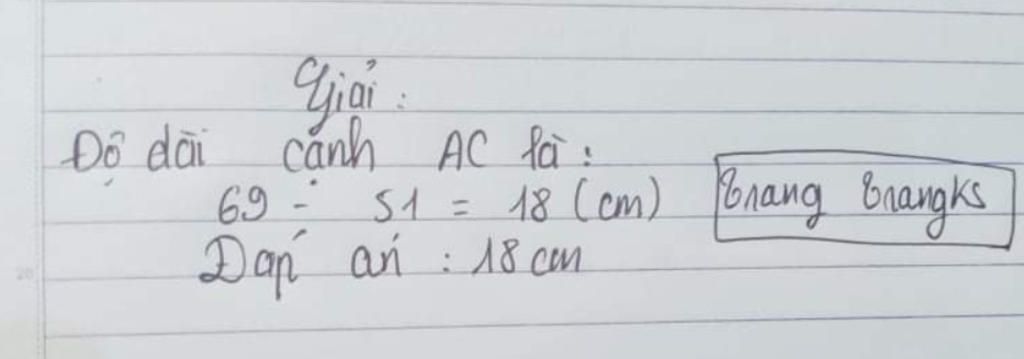 Giải:
Độ dài cạnh AC là:
69 - 51 = 18 (cm)
Đáp án: 18 cm
Trang Trangks